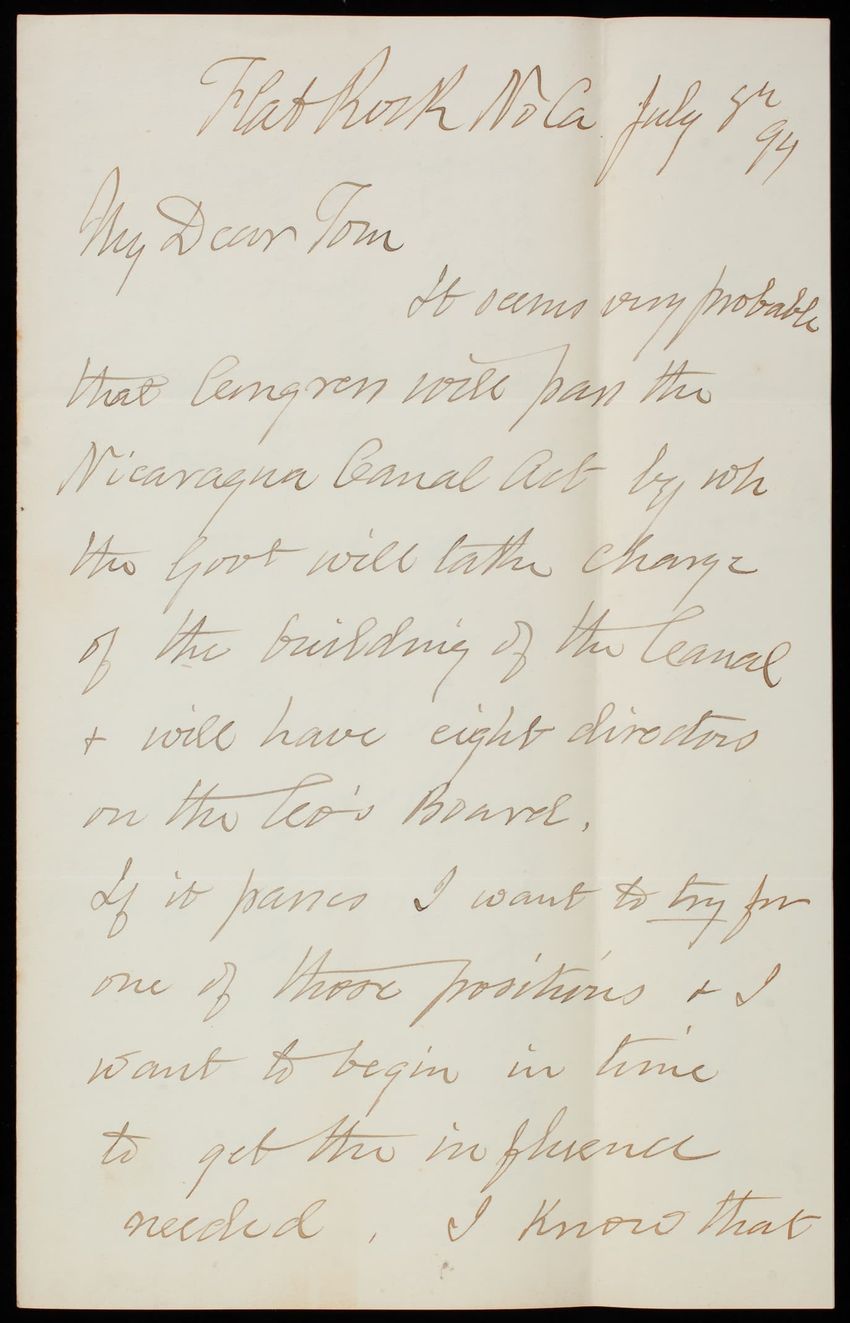 Flat Rock No Ca July 8th
94
My Dear Tom
It seems very probable
that Congress will pass the
Nicaragua Canal Act by wh
the Govt will take charge
of the building of the Canal
+ will have eight directors
on the Co's Board.
If it passes I want to try for
one of those positions & I
want to begin in time
to get the influence
needed. I know that